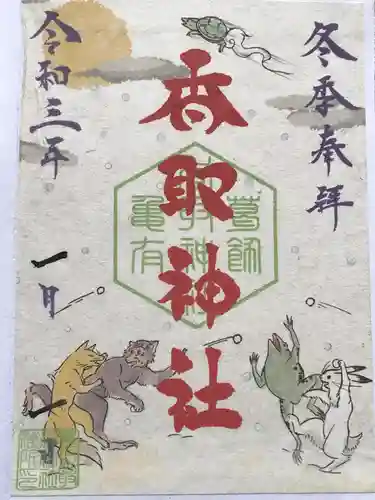 冬季奉拝
香取神社
葛飾
神社
亀有
令和三年
一月
一日